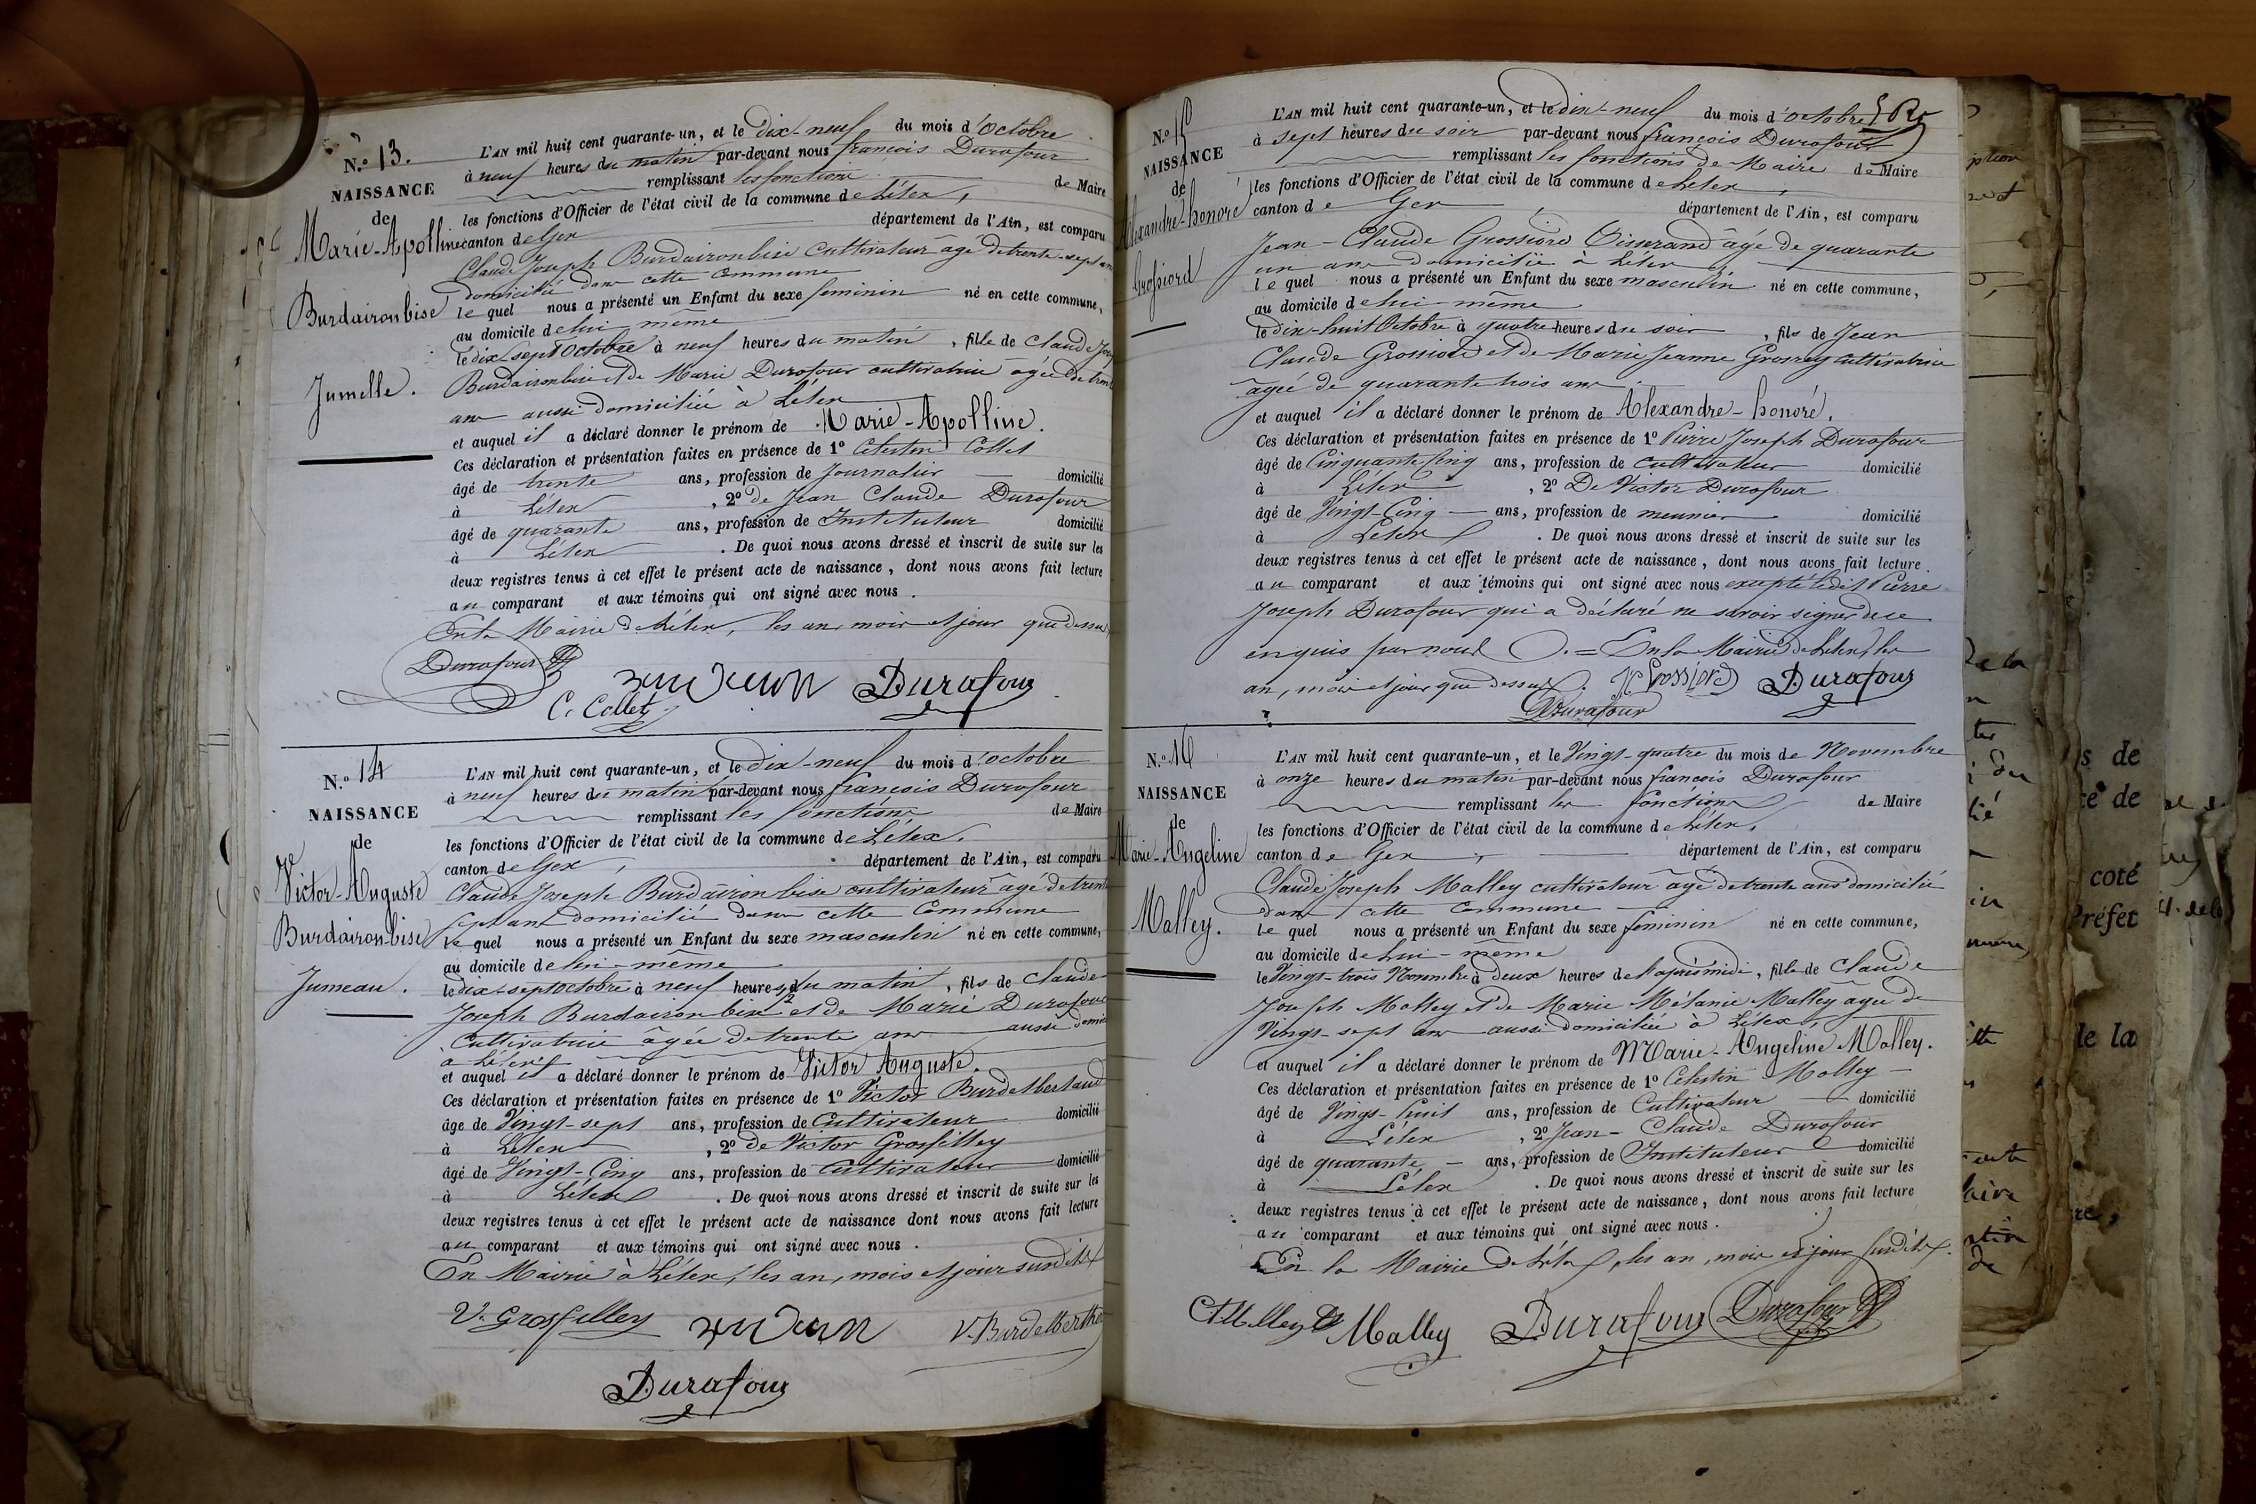 N.o 13.
NAISSANCE
de
Marie-Apolline
Burdaironbise
Jumelle.
L'AN mil huit cent quarante-un, et le dix-neuf du mois d'octobre
à neuf heures du matin par-devant nous françois Durafour
remplissant les fonctions de Maire
les fonctions d'Officier de l'état civil de la commune de Lélex,
canton de Gex département de l'Ain, est comparu
Claude Joseph Burdaironbise cultivateur âgé de trente-sept ans
domicilié dans cette commune
lequel nous a présenté un Enfant du sexe feminin né en cette commune,
au domicile de lui-même
le dix-sept Octobre à neuf heures du matin, fille de Claude
Burdaironbise et de Marie Durafour cultivatrice âgée de trente
ans aussi domiciliée à Lélex
et auquel il a déclaré donner le prénom de Marie-Apolline.
Ces déclaration et présentation faites en présence de 1o Célestin Collet
âgé de trente ans, profession de Journalier domicilié
à Lélex, 2o de Jean Claude Durafour
âgé de quarante ans, profession de Instituteur domicilié
à Lélex. De quoi nous avons dressé et inscrit de suite sur les
deux registres tenus à cet effet le présent acte de naissance, dont nous avons fait lecture
au comparant et aux témoins qui ont signé avec nous.
En la Mairie de Lélex, les an, mois et jour que dessus
Durafour
C. Collet
Durafour
N.o 14
NAISSANCE
de
Victor-Auguste
Burdaironbise
Jumeau.
L'AN mil huit cent quarante-un, et le dix-neuf du mois d'octobre
à neuf heures du matin par-devant nous françois Durafour
remplissant les fonctions de Maire
les fonctions d'Officier de l'état civil de la commune de Lélex,
canton de Gex, département de l'Ain, est comparu
Claude Joseph Burdaironbise cultivateur âgé de trente
sept ans domicilié dans cette Commune
lequel nous a présenté un Enfant du sexe masculin né en cette commune,
au domicile de lui-même
le dix-sept octobre à neuf heures 1/2 du matin, fils de Claude
Joseph Burdaironbise et de Marie Durafour
Cultivatrice âgée de trente ans aussi
à Lélex
et auquel il a déclaré donner le prénom de Victor Auguste.
Ces déclaration et présentation faites en présence de 1o Victor
âge de Vingt-sept ans, profession de Cultivateur domicilié
à Lélex, 2o de Victor Grosfilley
âgé de Vingt-Cinq ans, profession de Cultivateur domicilié
à Lélex. De quoi nous avons dressé et inscrit de suite sur les
deux registres tenus à cet effet le présent acte de naissance dont nous avons fait lecture
au comparant et aux témoins qui ont signé avec nous.
En Mairie à Lélex, les an, mois et jour susdits
V. Grosfilley
Durafour
N.o 15
NAISSANCE
de
Alexandre-honoré
Grossiord
L'AN mil huit cent quarante-un, et le dix-neuf du mois d'octobre
à sept heures du soir par-devant nous françois Durafour
remplissant les fonctions de Maire de Maire
les fonctions d'Officier de l'état civil de la commune de Lélex,
canton de Gex, département de l'Ain, est comparu
Jean-Claude Grossiord Tisserand âgé de quarante
un ans domicilié à Lélex
lequel nous a présenté un Enfant du sexe masculin né en cette commune,
au domicile de lui-même
le dix-huit Octobre à quatre heures du soir, fils de Jean
Claude Grossiord et de Marie Jeanne Grosrey cultivatrice
âgée de quarante trois ans
et auquel il a déclaré donner le prénom de Alexandre-honoré.
Ces déclaration et présentation faites en présence de 1o Pierre Joseph Durafour
âgé de Cinquante Cinq ans, profession de cultivateur domicilié
à Lélex, 2o De Victor Durafour
âgé de Vingt-Cinq ans, profession de meunier domicilié
à Lélex. De quoi nous avons dressé et inscrit de suite sur les
deux registres tenus à cet effet le présent acte de naissance, dont nous avons fait lecture
au comparant et aux témoins qui ont signé avec nous excepté ledit Pierre
Joseph Durafour qui a déclaré ne savoir signer de ce
enquis par nous. = En la Mairie de Lélex, les
an, mois et jour que dessus. Grossiord Durafour
Durafour
N.o 16
NAISSANCE
de
Marie-Angeline
Malley.
L'AN mil huit cent quarante-un, et le Vingt-quatre du mois de Novembre
à onze heures du matin par-devant nous françois Durafour
remplissant les fonctions de Maire
les fonctions d'Officier de l'état civil de la commune de Lélex,
canton de Gex, département de l'Ain, est comparu
Claude Joseph Malley cultivateur âgé de trente ans domicilié
dans cette commune
lequel nous a présenté un Enfant du sexe feminin né en cette commune,
au domicile de lui-même
le Vingt-trois Novembre à deux heures de l'après midi, fille de Claude
Joseph Malley et de Marie Mélanie Malley âgée de
Vingt-sept ans aussi domiciliée à Lélex,
et auquel il a déclaré donner le prénom de Marie-Angeline Malley.
Ces déclaration et présentation faites en présence de 1o Celestin Malley
âgé de Vingt-huit ans, profession de Cultivateur domicilié
à Lélex, 2o Jean-Claude Durafour
âgé de quarante ans, profession de Instituteur domicilié
à Lélex. De quoi nous avons dressé et inscrit de suite sur les
deux registres tenus à cet effet le présent acte de naissance, dont nous avons fait lecture
au comparant et aux témoins qui ont signé avec nous.
En la Mairie de Lélex, les an, mois et jour susdits.
Malley Durafour Durafour
s de
ce de
coté
Préfet
de la